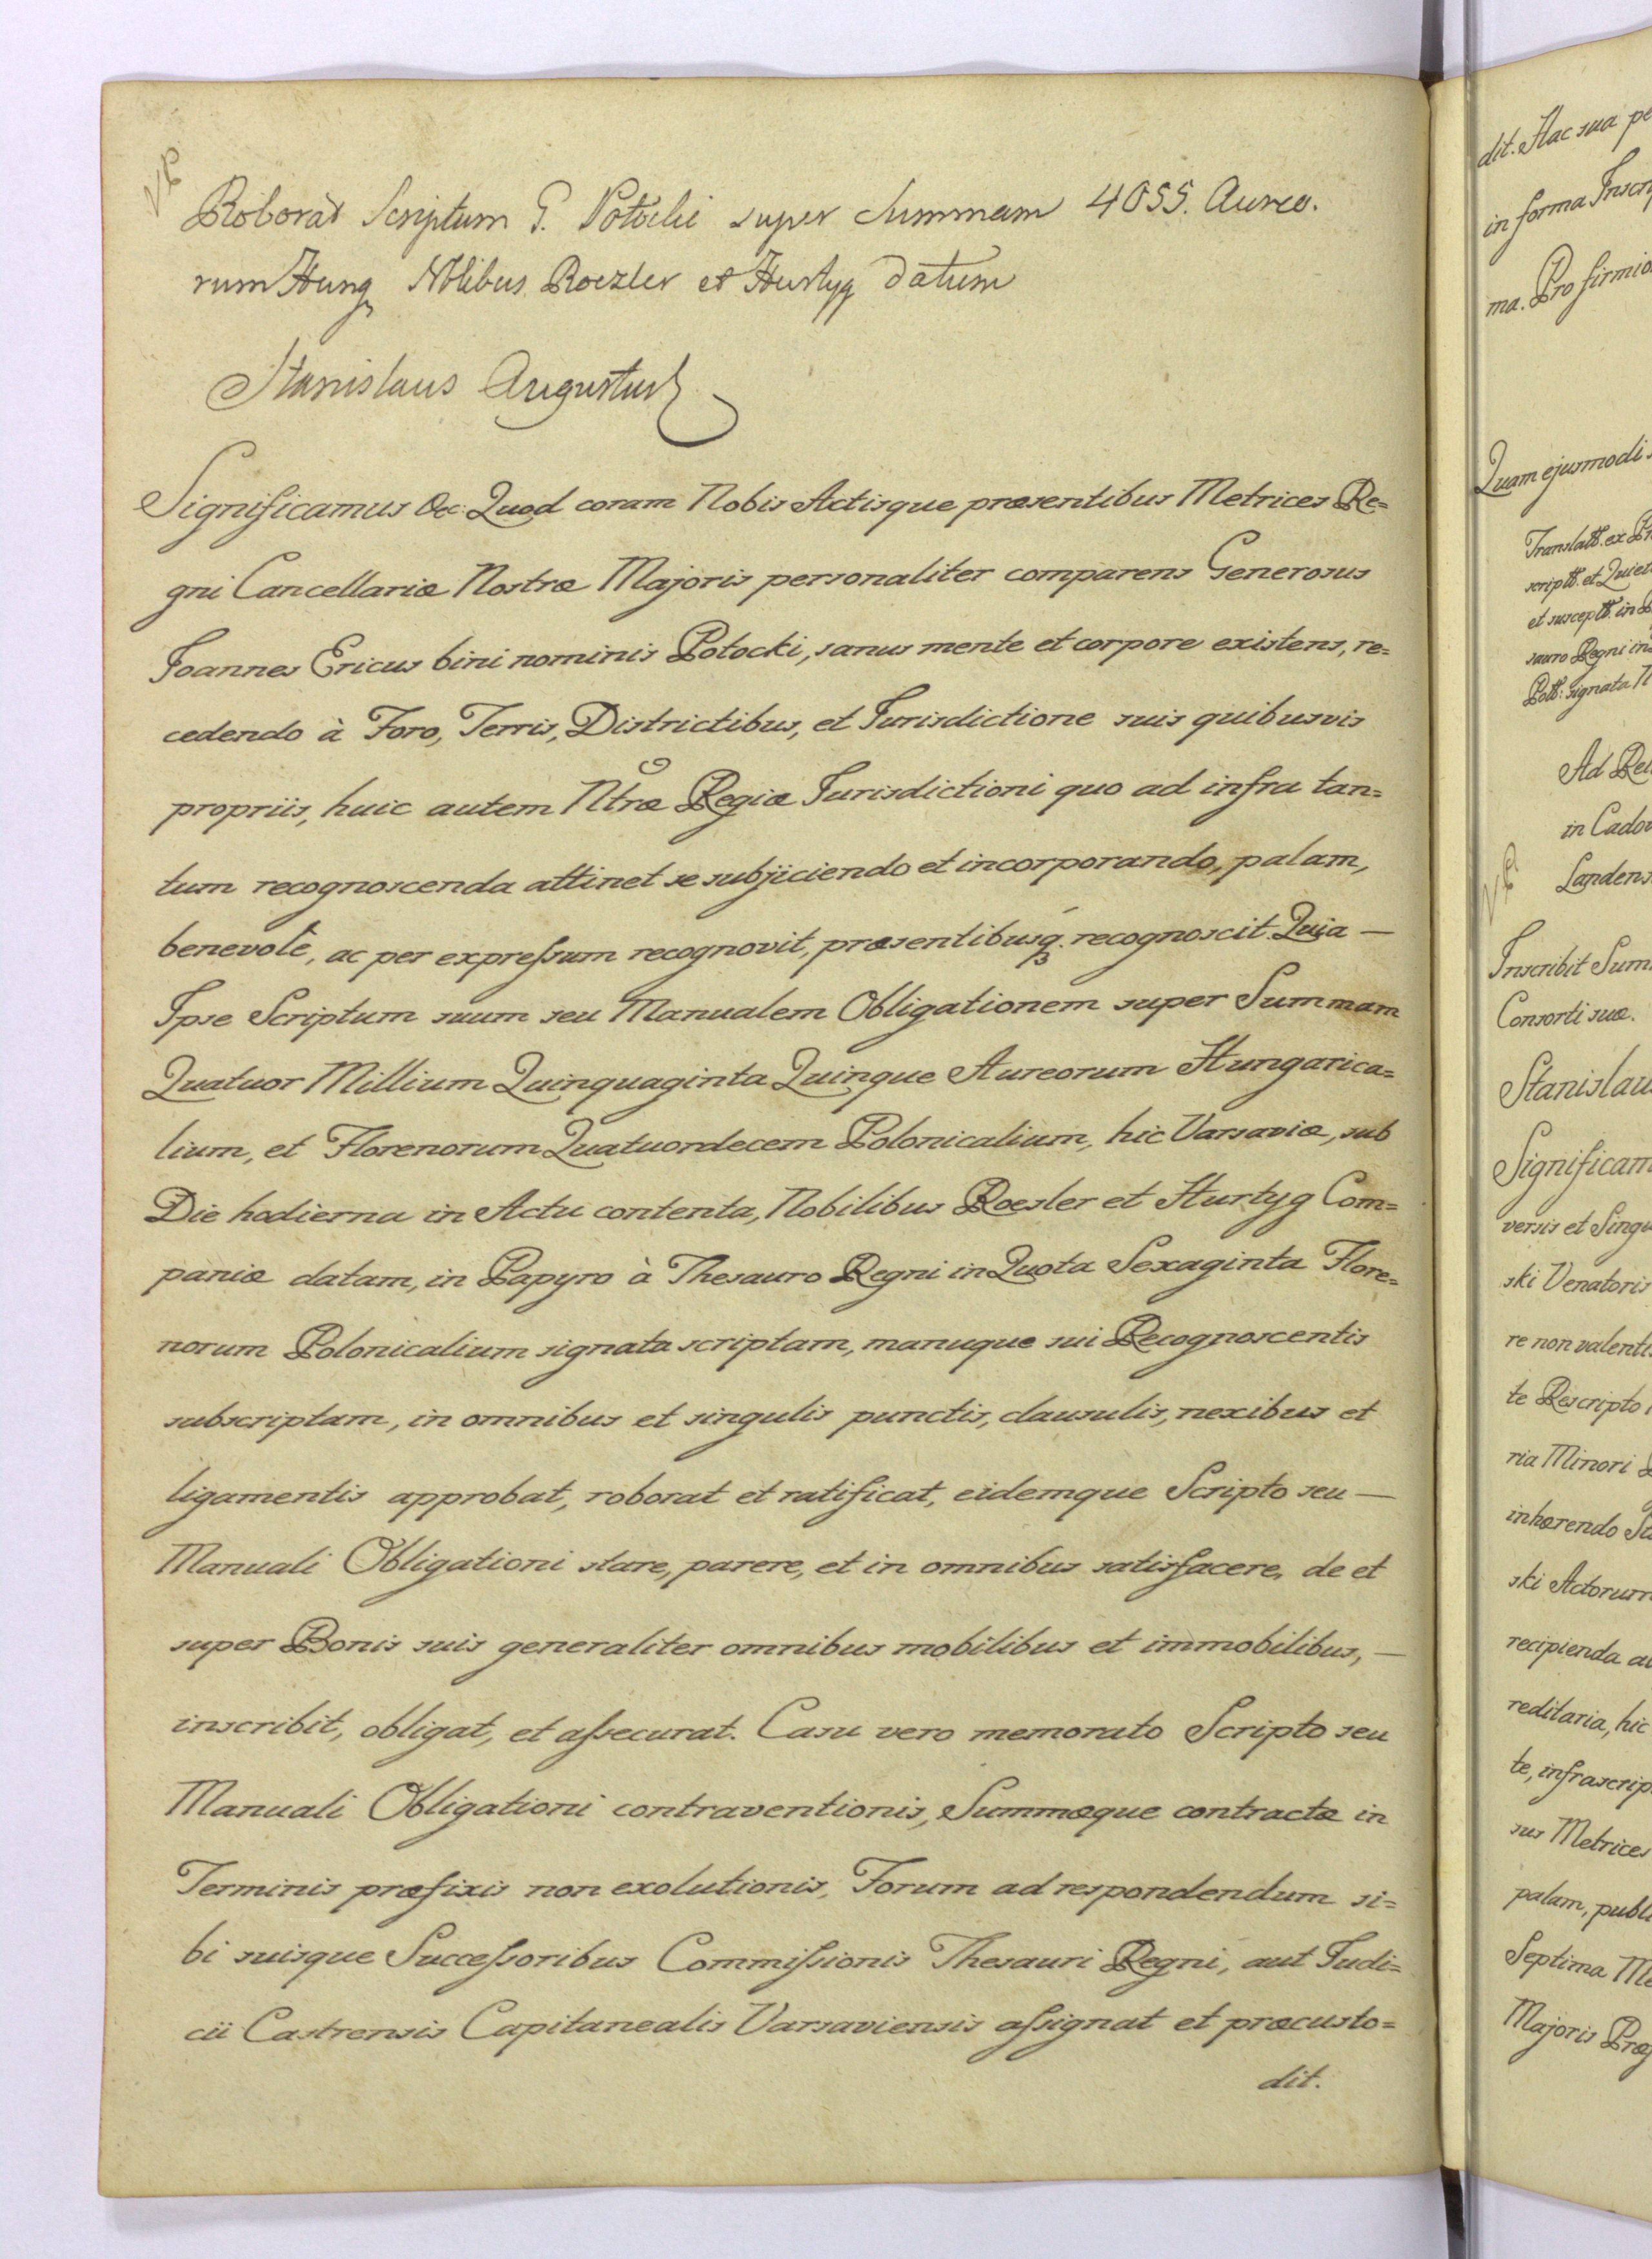 Roborat Scriptum G. Potocki super Summam 4055. Aureo.
rum Hung Nblibus Roezler et Hurtyg datum
Stanislaus Augustus
Significamus &c: Quod coram Nobis Actisque præsentibus Metrices Re=
gni Cancellariæ Nostræ Majoris personaliter comparens Generosus
Joannes Ericus bini nominis Potocki, sanus mente et corpore existens, re=
cedendo à Foro, Terris, Districtibus, et Jurisdictione suis quibusvis
propriis, huic autem Ntræ Regiæ Jurisdictioni quo ad infra tan=
tum recognoscenda attinet se subjiciendo et incorporando, palam,
benevolè, ac per expreſsum recognovit, præsentibusq. recognoscit. Quia —
Ipse Scriptum suum seu Manualem Obligationem super Summam
Quatuor Millium Quinquaginta Quinque Aureorum Hungarica=
lium, et Florenorum Quatuordecem Polonicalium, hic Varsaviæ, sub
Die hodierna in Actu contenta, Nobilibus Roesler et Hurtyg Com=
paniæ datam, in Papyro à Thesauro Regni in Quota Sexaginta Flore=
norum Polonicalium signata scriptam, manuque sui Recognoscentis
subscriptam, in omnibus et singulis punctis, clausulis, nexibus et
ligamentis approbat, roborat et ratificat, eidemque Scripto seu —
Manuali Obligationi stare, parere, et in omnibus satisfacere, de et
super Bonis suis generaliter omnibus mobilibus et immobilibus, —
inscribit, obligat, et aſsecurat. Casu vero memorato Scripto seu
Manuali Obligationi contraventionis, Summæque contractæ in
Terminis præfixis non exolutionis, Forum ad respondendum si=
bi suisque Succeſsoribus Commiſsionis Thesauri Regni, aut Judi=
cii Castrensis Capitanealis Varsaviensis aſsignat et præcusto=
dit.
dit. Hac sua
in forma
ma. Pro
Quam ejusmodi
Translatt. ex
scriptt. et
et susceptt. in
Regni
signata
Ad
in
Inscribit
Consorti suæ.
Significam
versis et
ski Venatoris
re non valenti
te Rescripto
ria Minori
inhærendo
ski Actorum
recipienda
reditaria, hic
te,
sus Metrices
palam,
Septima
Majoris